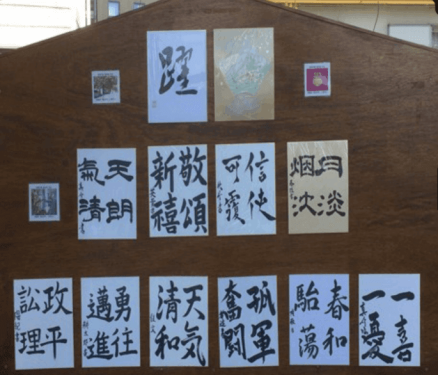 躍
月淡
烟沈
信使
可覆
敬頌
新禧
天朗
氣清
一喜
一憂
春和
駘蕩
孤軍
奮闘
天気
清和
勇往
邁進
政平
訟理